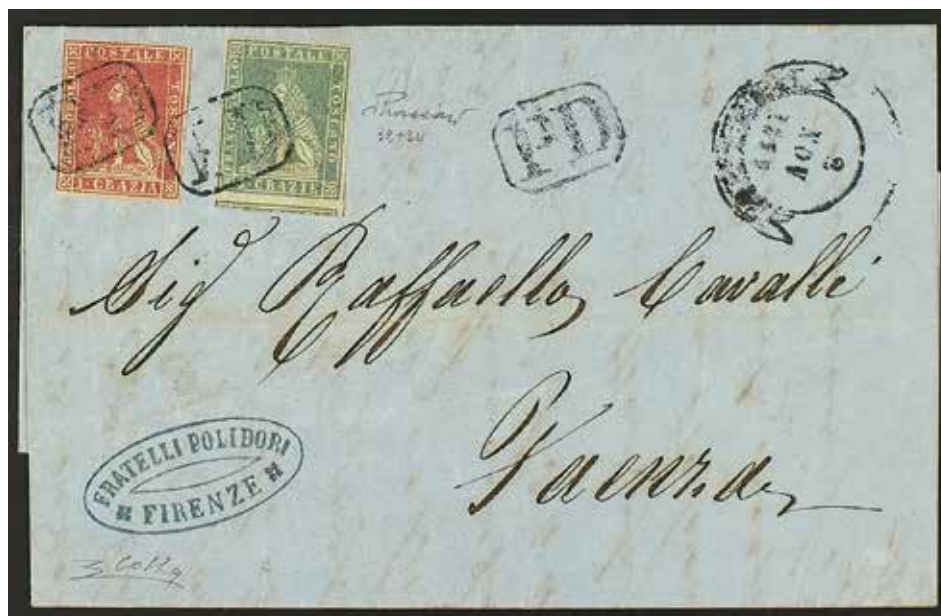 POSTALE
FRANCOBOLLO
TOSCANO
1 CRAZIA
POSTALE
FRANCOBOLLO
TOSCANO
CRAZIE
PD
PD
PD
8
NOV
Sig Raffaello Cavalli
Faenza
FRATELLI POLIDORI
FIRENZE